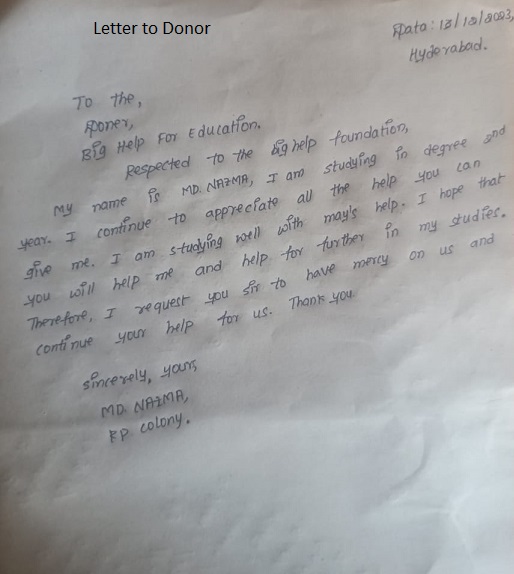 Letter to Donor
Data: 13/12/2023,
Hyderabad.
To the,
Doner,
Big Help For Education.
Respected to the big help foundation,
My name is MD. NAZMA, I am studying in degree 2nd
year. I continue to appreciate all the help you can
give me. I am studying well with may's help. I hope that
you will help me and help for further in my studies.
Therefore, I request you sir to have mercy on us and
continue your help for us. Thank you
sincerely, yours,
MD. NAZMA,
FP colony.